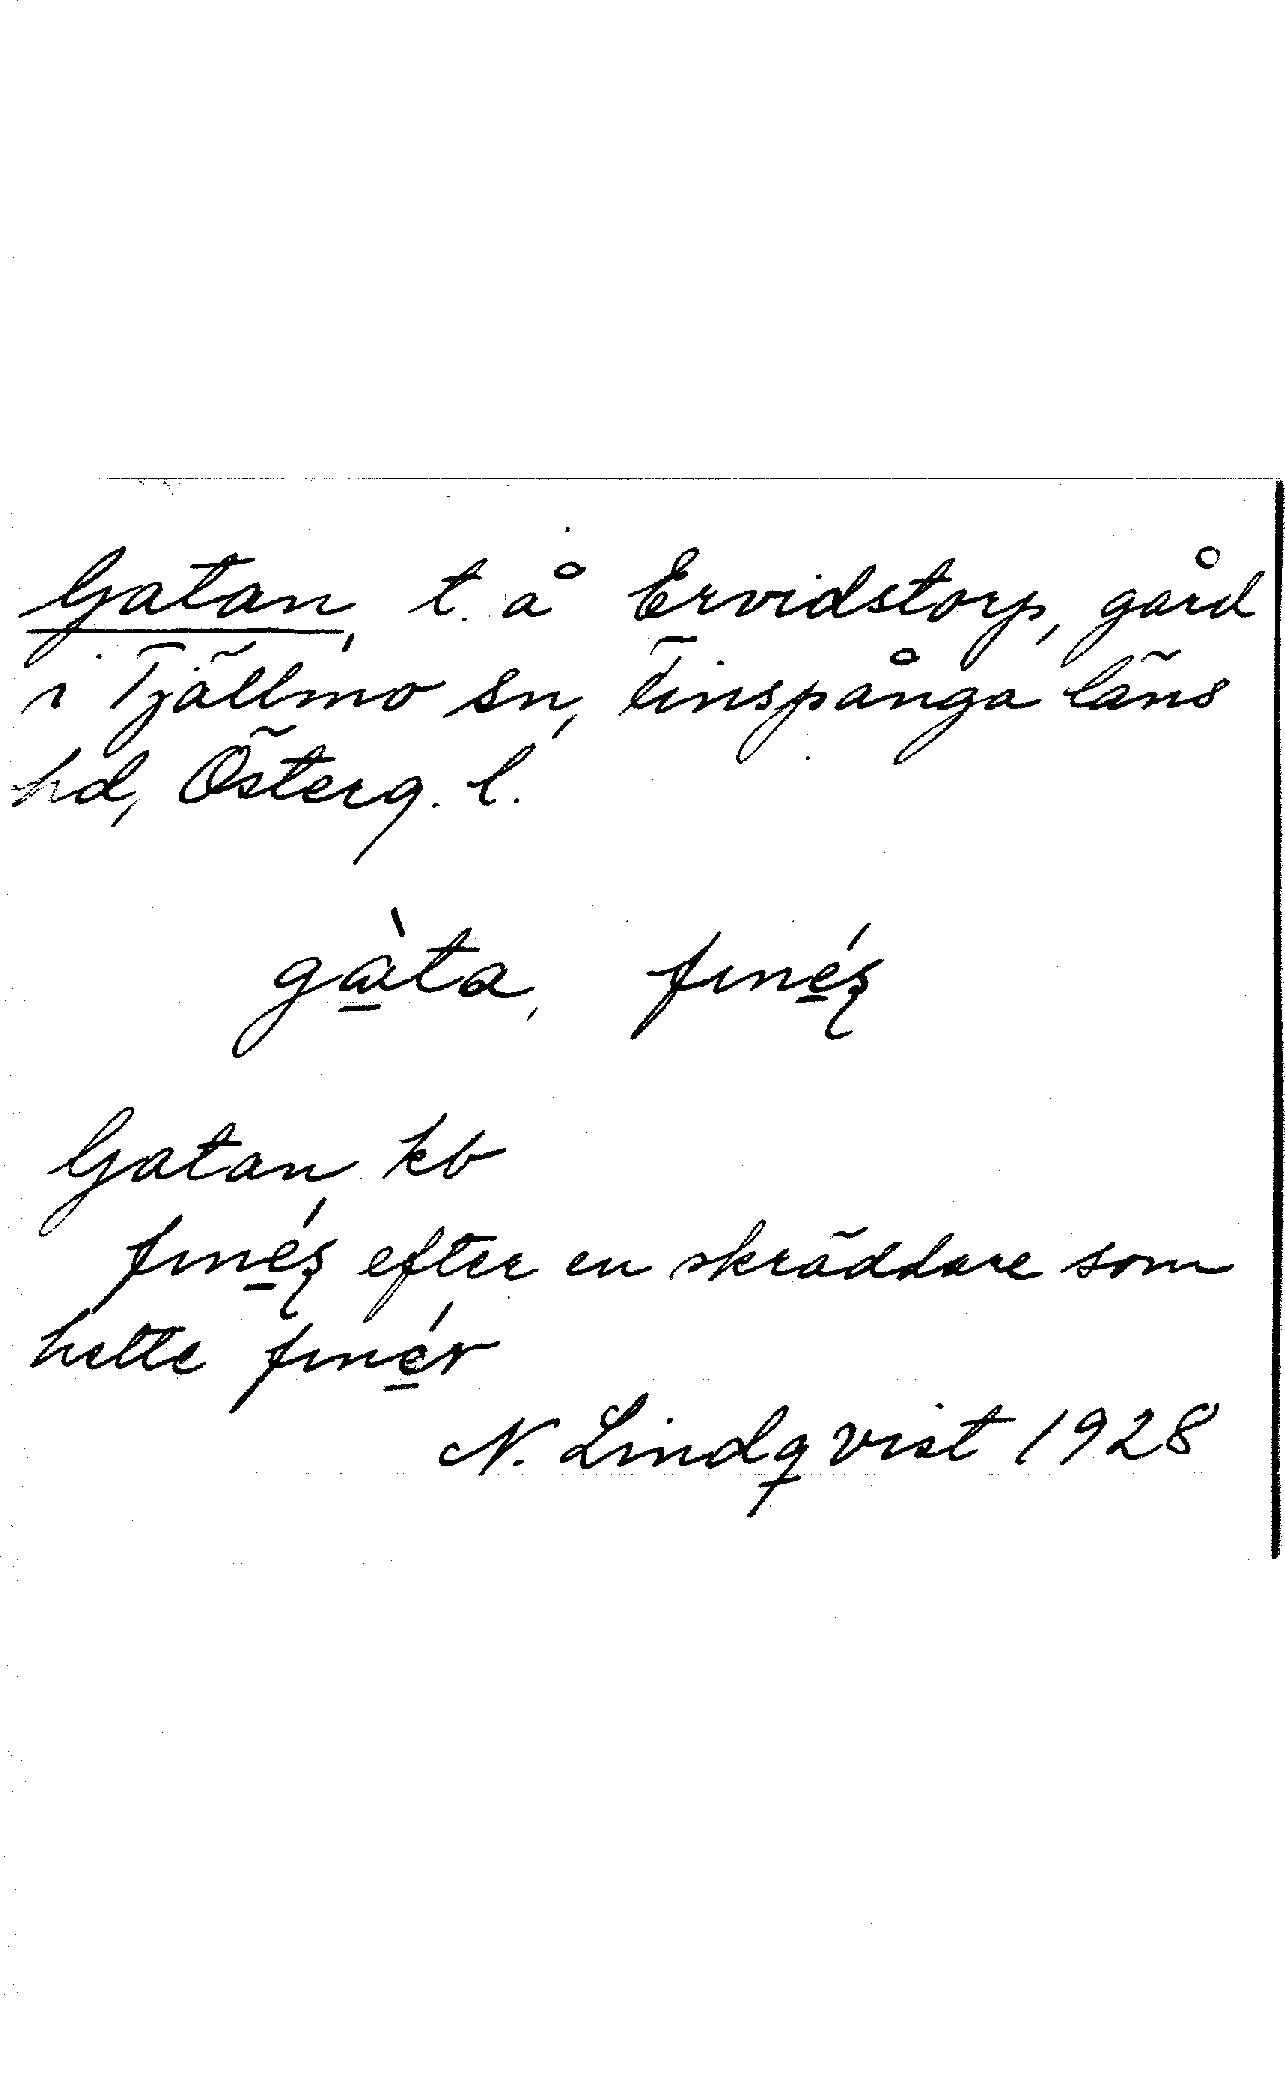 Gatan, t. å Ervidstorp, gård
i Tjällmo sn, Finspånga läns
hd, Österg. l.
gàta, finéʂ
Gatan kb
finéʂ efter en skräddare som
hette finér
N. Lindqvist 1928